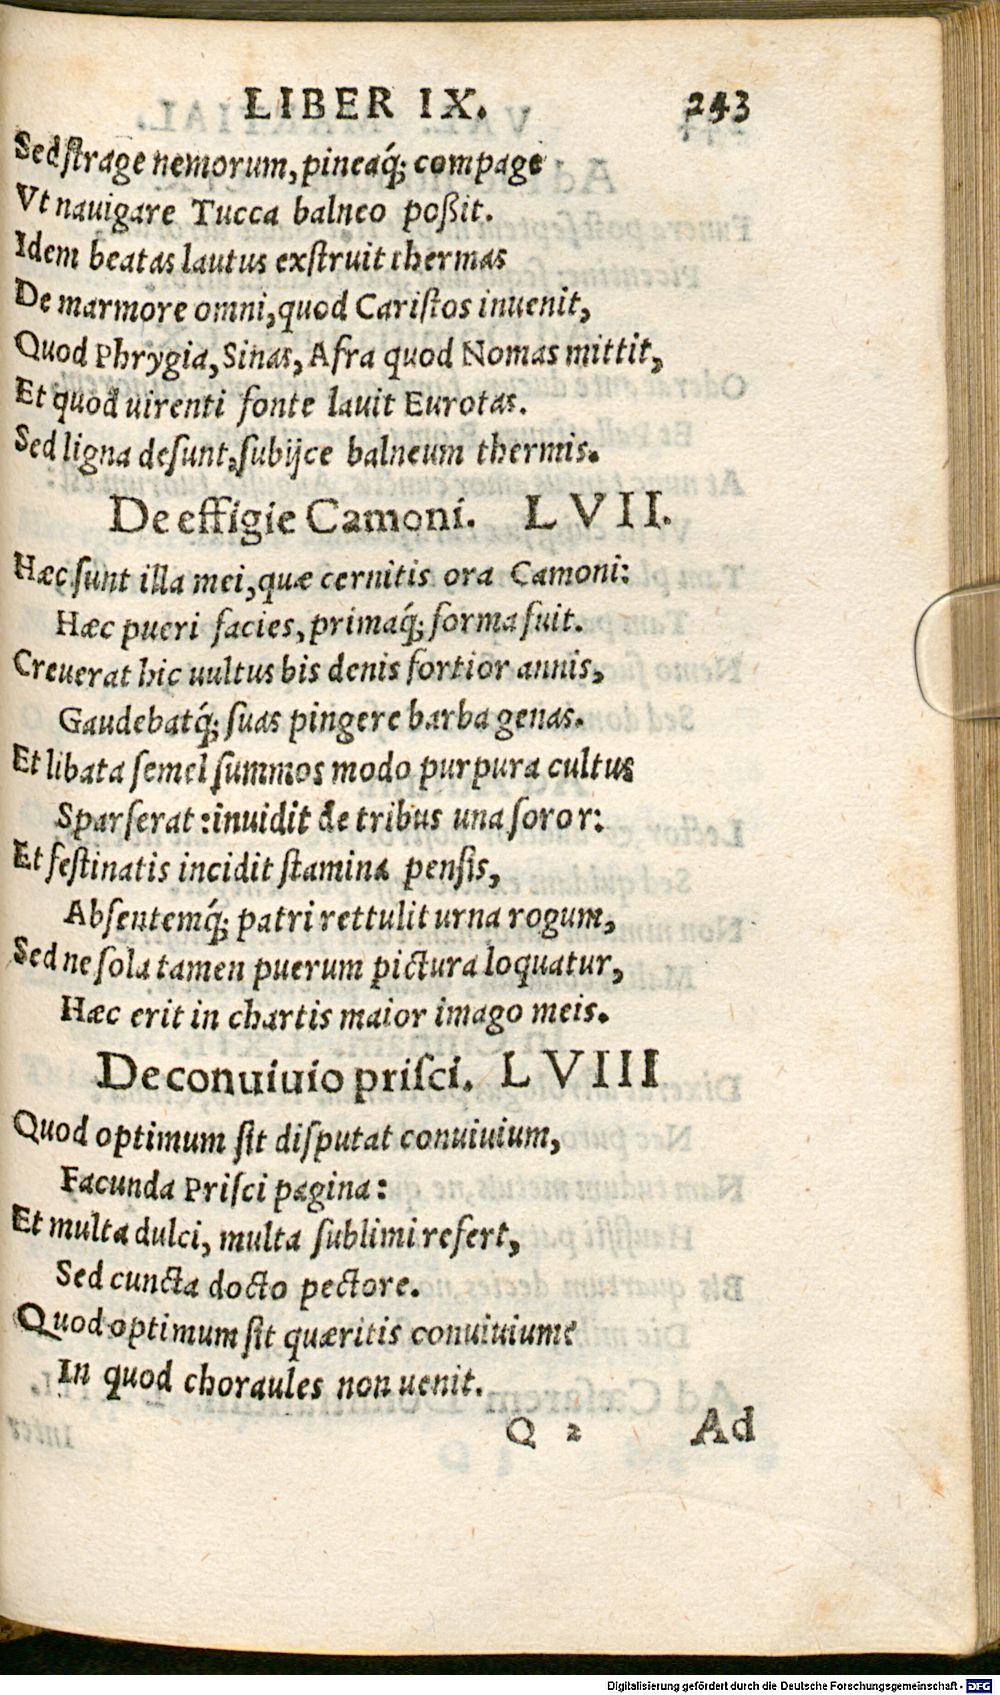 LIBER IX. 243
Sed ſtrage nemorum, pineaq́; compage
Vt nauigare Tucca balneo poßit.
Idem beatas lautus exſtruit thermas
De marmore omni, quod Cariſtos inuenit,
Quod Phrygia, Sinas, Afra quod Nomas mittit,
Et quod uirenti fonte lauit Eurotas.
Sed ligna deſunt, ſubijce balneum thermis.
De effigie Camoni. LVII.
Hæc ſunt illa mei, quæ cernitis ora Camoni:
Hæc pueri facies, primaq́; forma fuit.
Creuerat hic uultus bis denis fortior annis,
Gaudebatq́; ſuas pingere barba genas.
Et libata ſemel ſummos modo purpura cultus
Sparſerat: inuidit de tribus una ſoror:
Et feſtinatis incidit ſtamina penſis,
Abſentemq́; patri rettulit urna rogum,
Sed ne ſola tamen puerum pictura loquatur,
Hæc erit in chartis maior imago meis.
De conuiuio priſci. LVIII
Quod optimum ſit diſputat conuiuium,
Facunda Priſci pagina:
Et multa dulci, multa ſublimi refert,
Sed cuncta docto pectore.
Quod optimum ſit quæritis conuiuium?
In quod choraules non uenit.
Q 2 Ad
Digitalisierung gefördert durch die Deutsche Forschungsgemeinschaft - DFG